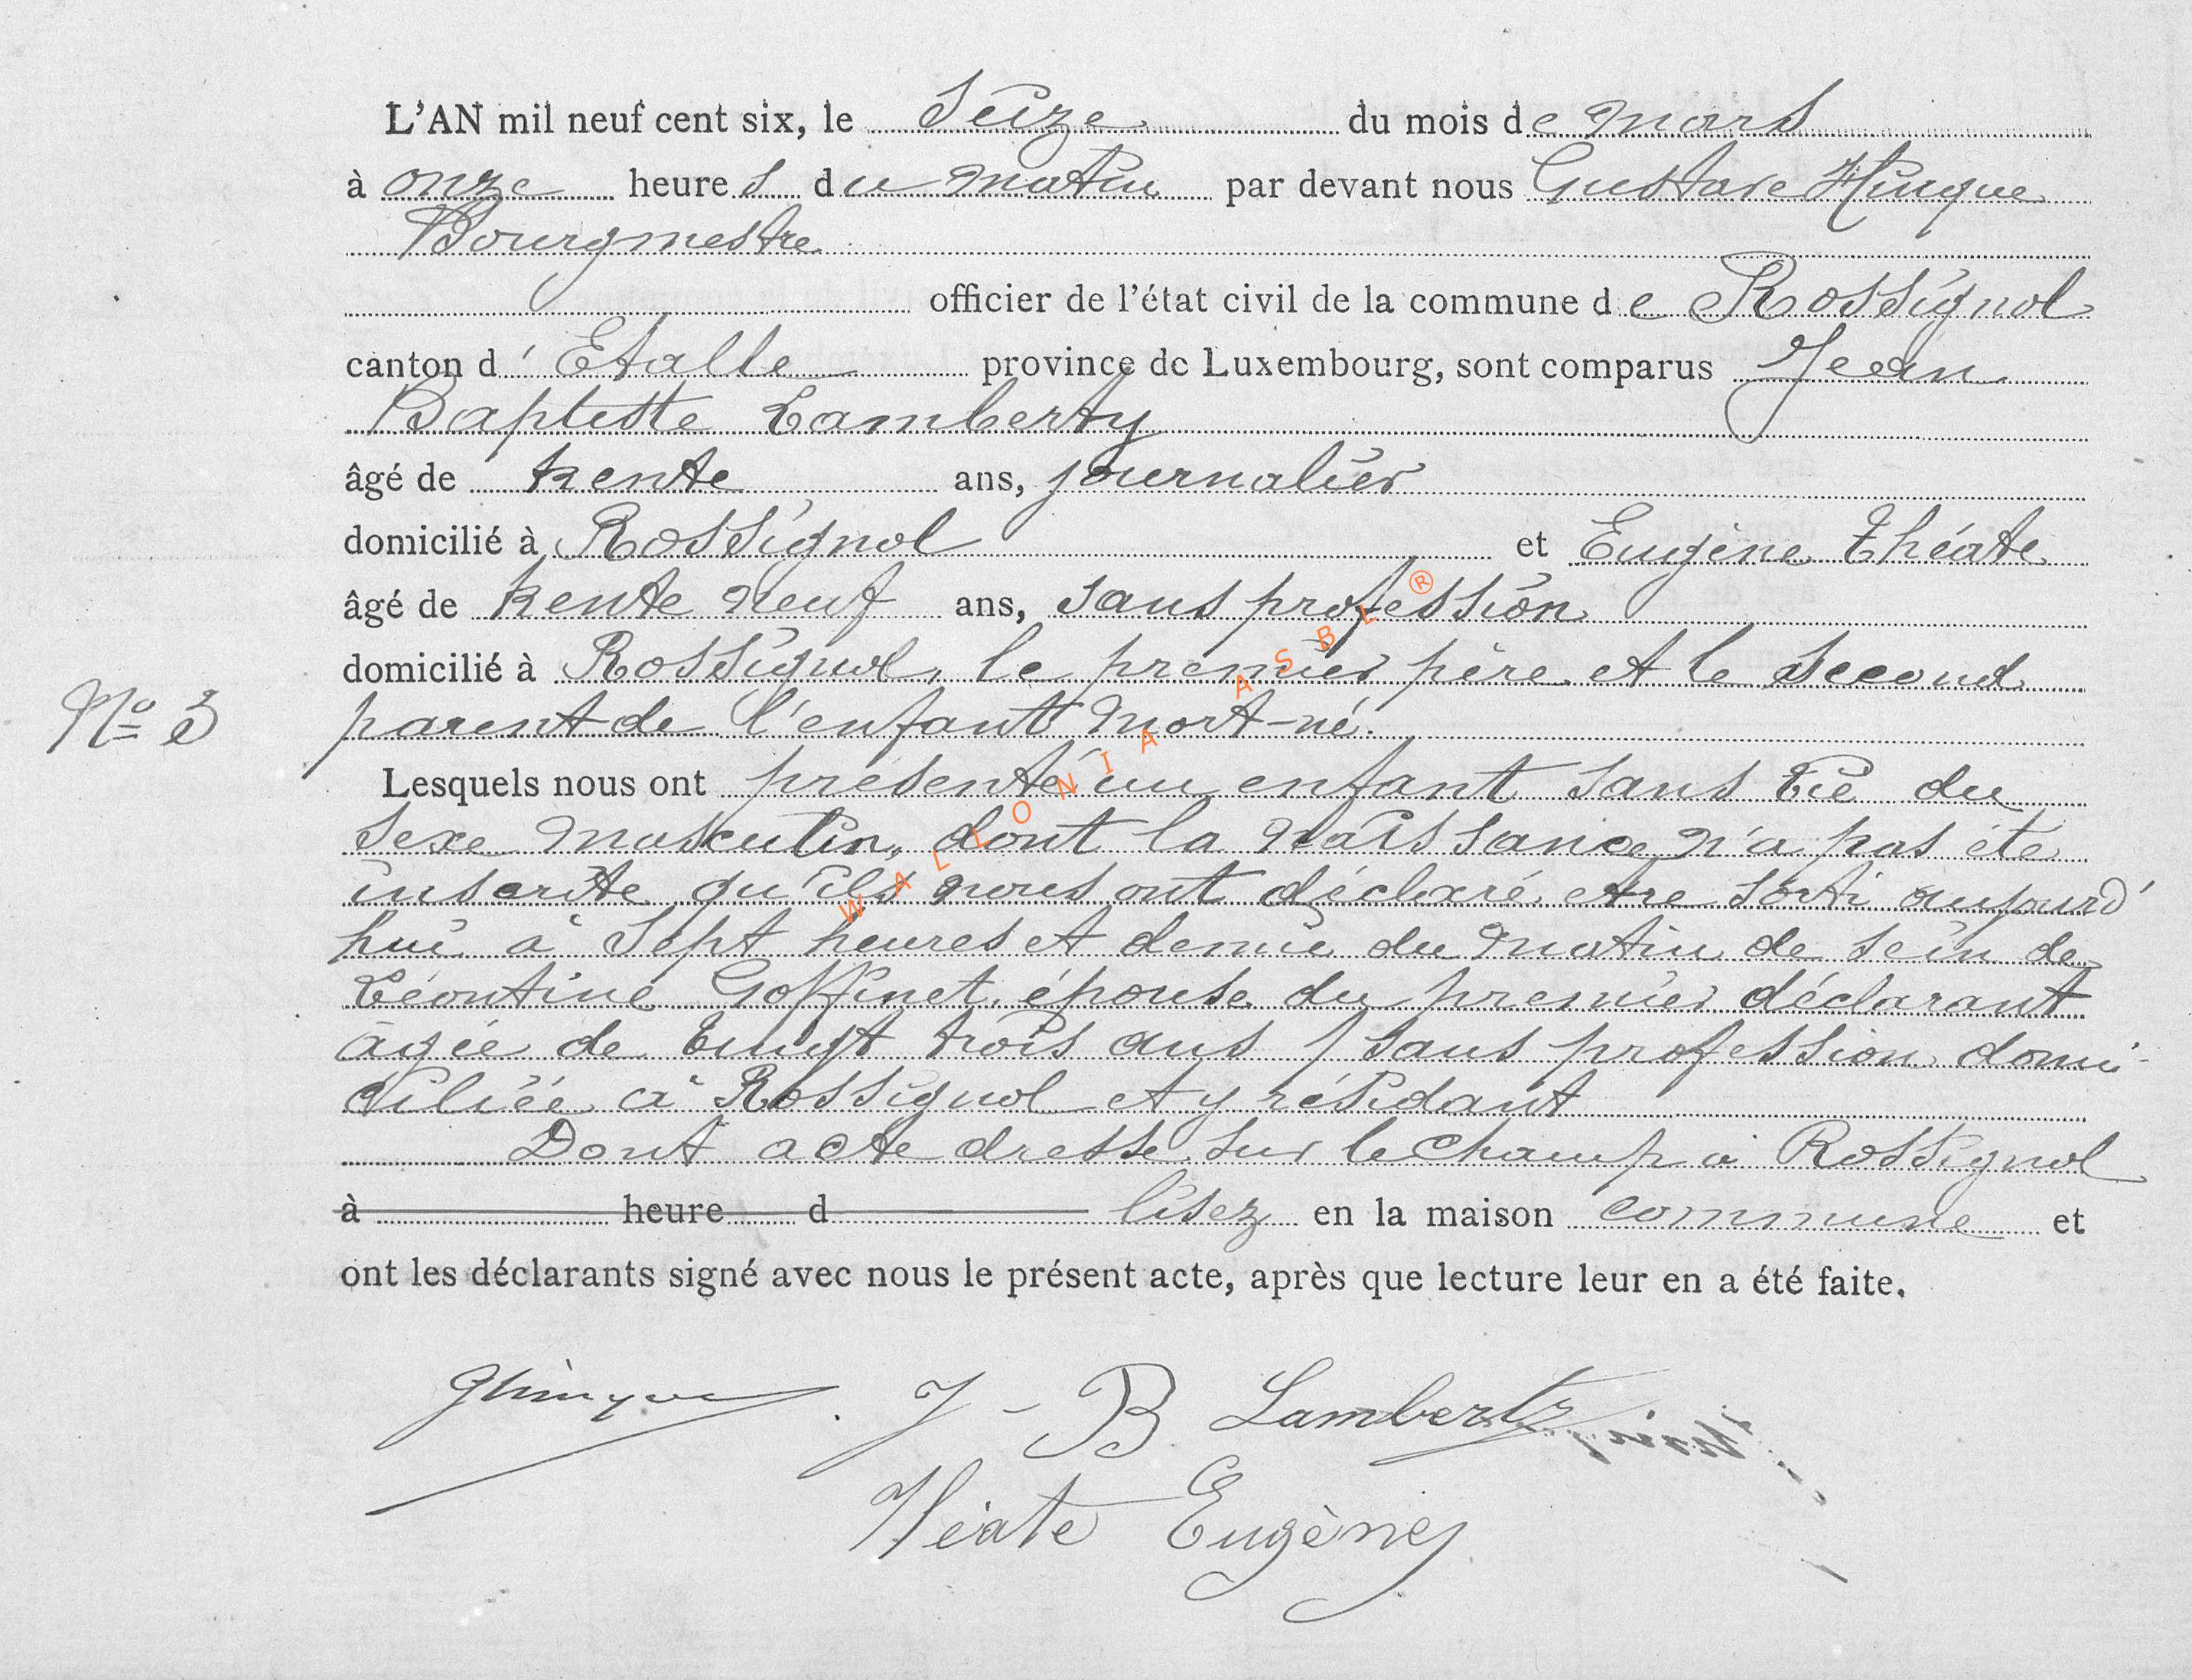 L'AN mil neuf cent six, le Seize du mois de Mars
à onze heures du matin par devant nous Gustave Hinque
Bourgmestre
officier de l'état civil de la commune de Rossignol
canton d'Etalle province de Luxembourg, sont comparus Jean
Baptiste Lamberty
âgé de trente ans, journalier
domicilié à Rossignol et Eugène Théate
âgé de trente neuf ans, sans profession
domicilié à Rossignol, le premier père et le second
N° 3 parent de l'enfant mort-né.
Lesquels nous ont présenté un enfant sans vie du
sexe masculin, dont la naissance n'a pas été
inscrite qu'ils nous ont déclaré etre sorti aujourd'
hui à Sept heures et demie du matin de sein de
Léontine Goffinet, épouse du premier déclarant
agée de vingt trois ans, sans profession domi-
ciliée à Rossignol et y résidant
Dont acte dressé sur le champ à Rossignol
à heure d lisez en la maison commune et
ont les déclarants signé avec nous le présent acte, après que lecture leur en a été faite.
GHinque J-B Lamberty
Théate Eugène
WALLONIA ASBL ®